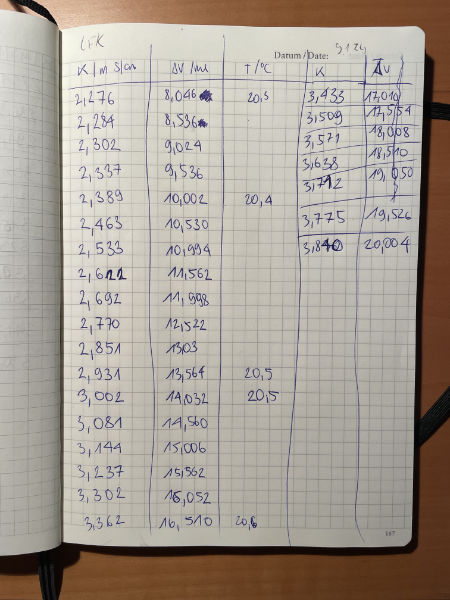 LFK
Datum/Date: 5.1.24
K / m S/cm ΔV / ml T /°C K ΔV
2,276 8,046 20,5 3,433 17,010
2,284 8,536 3,509 17,554
2,302 9,024 3,571 18,008
2,337 9,536 3,638 18,510
2,389 10,002 20,4 3,712 19,050
2,463 10,530 3,775 19,526
2,533 10,994 3,840 20,004
2,622 11,562
2,692 11,998
2,770 12,522
2,851 13,03
2,931 13,564 20,5
3,002 14,032 20,5
3,081 14,560
3,144 15,006
3,237 15,562
3,302 16,052
3,362 16,510 20,6
167